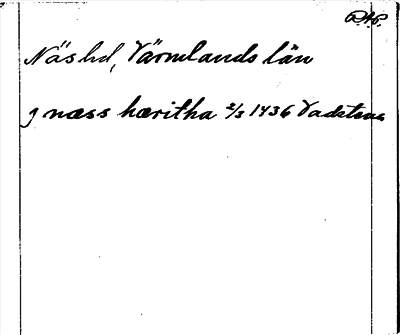 DAP.
Näs hd, Värmlands län
j næss hæritha 2/3 1436 Vadstena